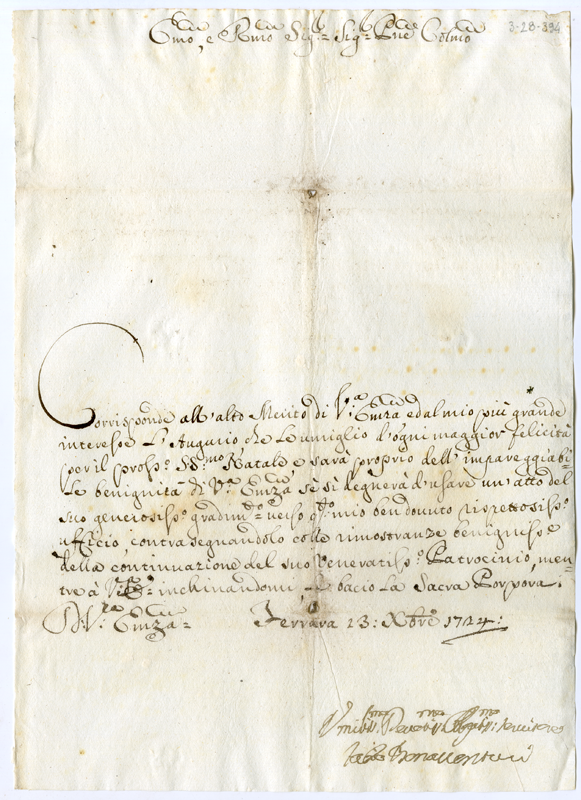 3-28-894
Emo, e Rmo Sig:r Sig:r Pne Colmo
Corrisponde all'alto Merito di V:a Emza, e dal mio più grande
interesse L'Augurio che Le umiglio d'ogni maggior felicità
per il pross:o SS:mo Natale e sarà proprio dell'impareggiabi-
le benignità di V:a Emza se si degnerà d'usare un'atto del
suo generosiss:o gradim:to verso q:to mio ben dovuto rispettosiss:o
ufficio, contrasegnandolo colle rimostranze benigniss:e
della continuazione del suo Veneratiss:o Patrocinio, men-
tre à V:a E: inchinandomi Le bacio La Sacra Porpora.
D: V:ra Emza= Ferrara 23: Xbre 1724:
Umiliss:mo Devotiss:mo Obligatiss:mo servitore